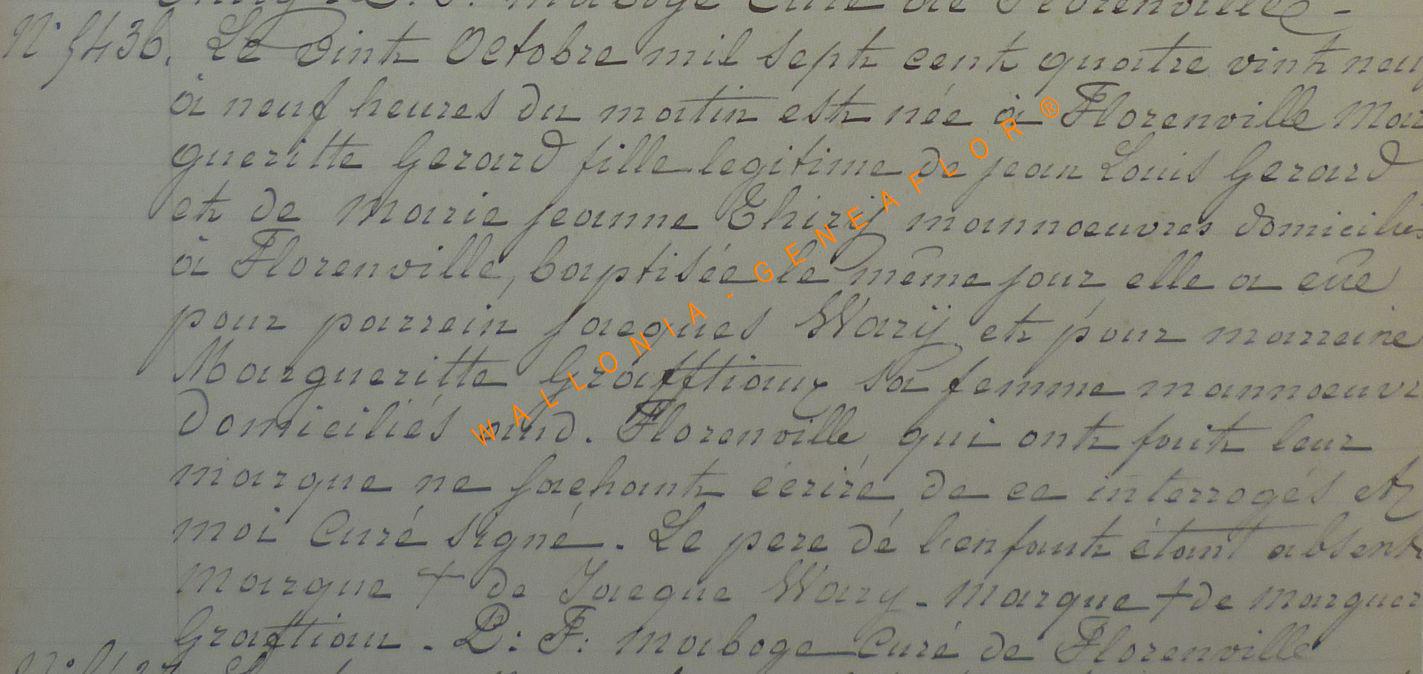 curé de Florenville -
N° 5436. Le vint Octobre mil sept cent quatre vint neuf
à neuf heures du matin est née à Florenville Mar
gueritte Gerard fille legitime de jean Louis Gerard
et de marie jeanne Thirij mannoeuvres domiciliés
à Florenville, baptisée le même jour elle a eûe
pour parrein jacques Warij et pour marreine
Margueritte Grafftiaux sa femme mannoeuvr
domiciliés aud. Florenville qui ont fait leur
marque ne sachant écrire de ce interrogés et
moi Curé signé. Le pere dé l'enfant étant absent
marque + de Jacque Wary - marque + de marguer
Graftiau - P: F: maboge Curé de Florenville
WALLONIA - GENEAFLOR®